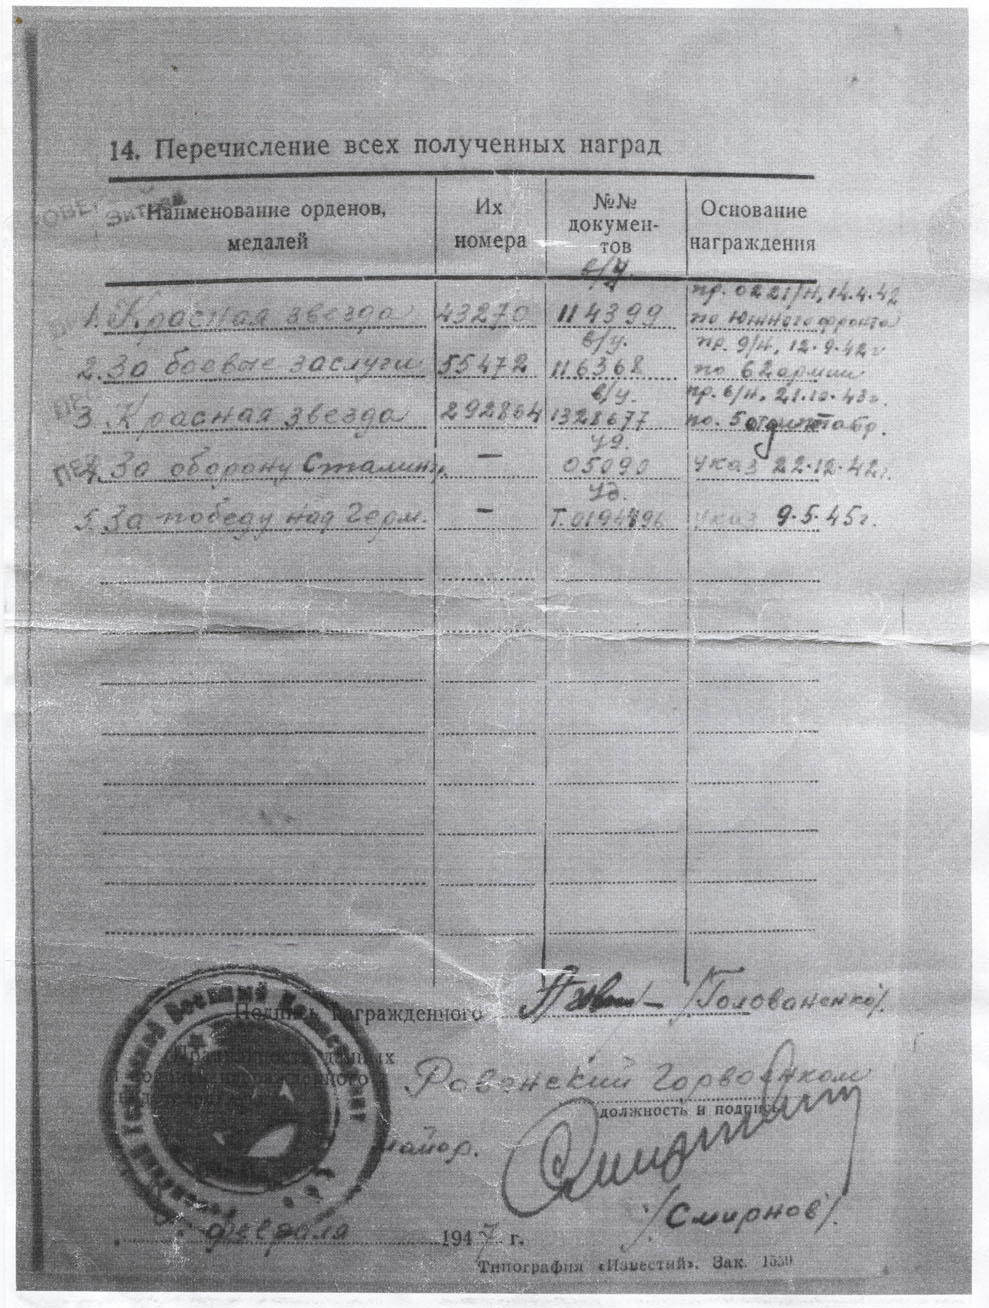 14. Перечисление всех полученных наград
Наименование орденов, медалей
Их номера
№№ докумен-тов
Основание награждения
в/у.
пр. 0221/н, 14.4.42
1. Красная звезда 43270 114399 по Южного фронта
в/у. пр. 9/н, 12.9.42г
2. За боевые заслуги 55472 116368 по 62 армии
в/у. пр. 6/н. 21.10.43г.
3. Красная звезда 292864 1328677 по. 5
уд.
4. За оборону Сталингр. — 05090 указ 22.12.42г.
уд.
5. За победу над Герм. — Т.0194896 указ 9.5.45г.
Подпись награжденного /Голованенко/.
Правильность данных
и подпись награжденного
Ровенский Горвоенком
должность и подпись
майор.
/Смирнов/.
февраля 1947 г.
Типография «Известий». Зак. 1550